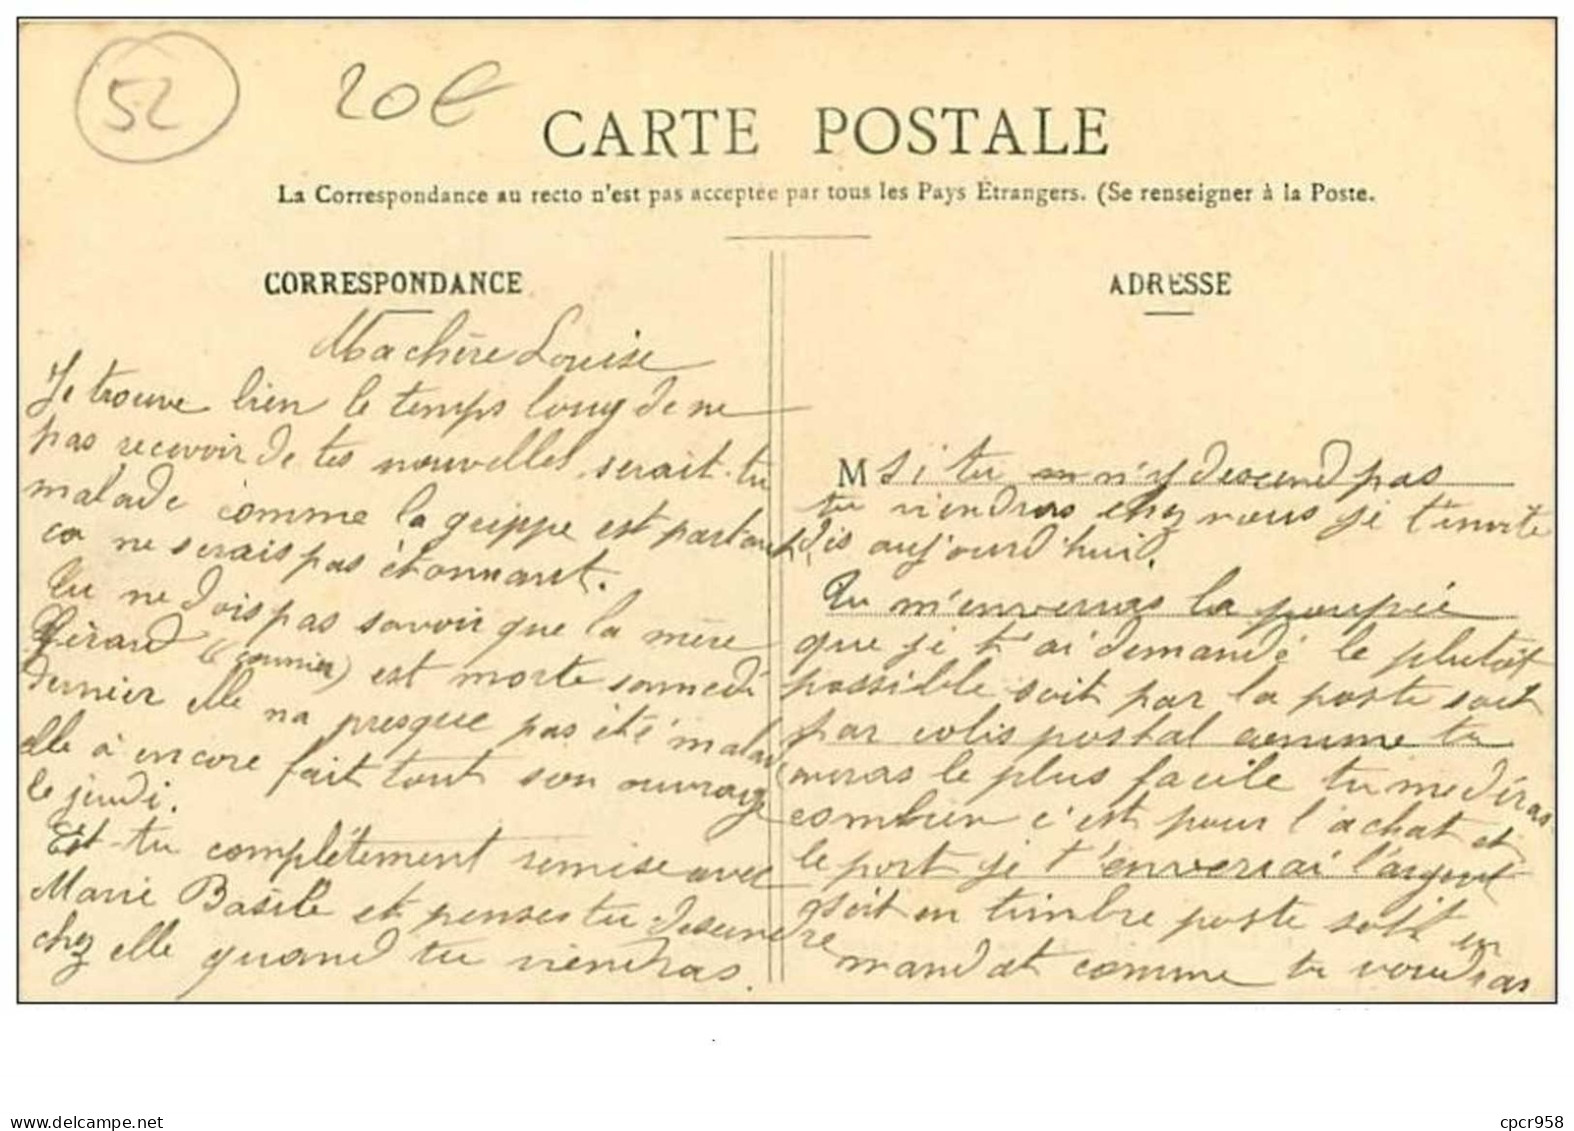 52
20€
CARTE POSTALE
La Correspondance au recto n'est pas acceptée par tous les Pays Etrangers. (Se renseigner à la Poste.
CORRESPONDANCE
Ma chère Louise
Je trouve bien le temps long de ne
pas recevoir de tes nouvelles serait-tu
malade comme la grippe est partout
ca ne serais pas étonnant.
Tu ne dois pas savoir que la mère
Gérard est morte samedi
dernier elle na presque pas été malade
elle à encore fait tout son ouvrage
le jeudi.
Est-tu complétement remise avec
Marie Basile et penses tu descendre
chez elle quand tu viendras.
ADRESSE
M si tu n'y descend pas
tu viendras chez nous je t'invite
dis aujourd'hui.
Tu m'enverras la poupée
que je t'ai demandé le plutôt
possible soit par la poste soit
par colis postal comme tu
auras le plus facile tu me diras
combien c'est pour l'achat et
le port je t'enverrai l'argent
soit en timbre poste soit en
mandat comme tu voudras
cpcr958